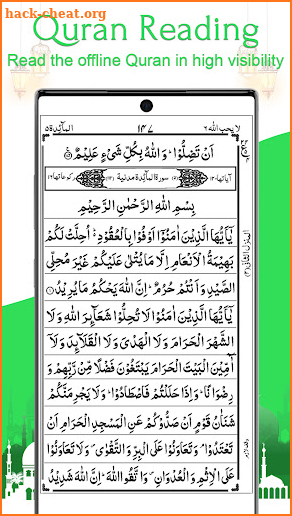 hack-cheat.org
Quran Reading
Read the offline Quran in high visibility
المآئدة ٥
١٤٧
لا یحب اللہ ٦
اَنْ تَضِلُّوْا ؕ وَاللّٰهُ بِكُلِّ شَیْءٍ عَلِیْمٌ
سورة المآئدة مدنیة
بِسْمِ اللّٰهِ الرَّحْمٰنِ الرَّحِیْمِ
یٰۤاَیُّهَا الَّذِیْنَ اٰمَنُوْۤا اَوْفُوْا بِالْعُقُوْدِ ؕ اُحِلَّتْ لَكُمْ
بَهِیْمَةُ الْاَنْعَامِ اِلَّا مَا یُتْلٰی عَلَیْكُمْ غَیْرَ مُحِلِّی
الصَّیْدِ وَاَنْتُمْ حُرُمٌ ؕ اِنَّ اللّٰهَ یَحْكُمُ مَا یُرِیْدُ
یٰۤاَیُّهَا الَّذِیْنَ اٰمَنُوْا لَا تُحِلُّوْا شَعَآئِرَ اللّٰهِ وَلَا
الشَّهْرَ الْحَرَامَ وَلَا الْهَدْیَ وَلَا الْقَلَآئِدَ وَلَاۤ
آٰمِّیْنَ الْبَیْتَ الْحَرَامَ یَبْتَغُوْنَ فَضْلًا مِّنْ رَّبِّهِمْ وَ
رِضْوَانًا ؕ وَاِذَا حَلَلْتُمْ فَاصْطَادُوْا ؕ وَلَا یَجْرِمَنَّكُمْ
شَنَاٰنُ قَوْمٍ اَنْ صَدُّوْكُمْ عَنِ الْمَسْجِدِ الْحَرَامِ اَنْ
تَعْتَدُوْا ۘ وَتَعَاوَنُوْا عَلَی الْبِرِّ وَالتَّقْوٰی ۪ وَلَا تَعَاوَنُوْا
عَلَی الْاِثْمِ وَالْعُدْوَانِ ۪ وَاتَّقُوا اللّٰهَ ؕ اِنَّ اللّٰهَ شَدِیْدُ
hack-cheat.org